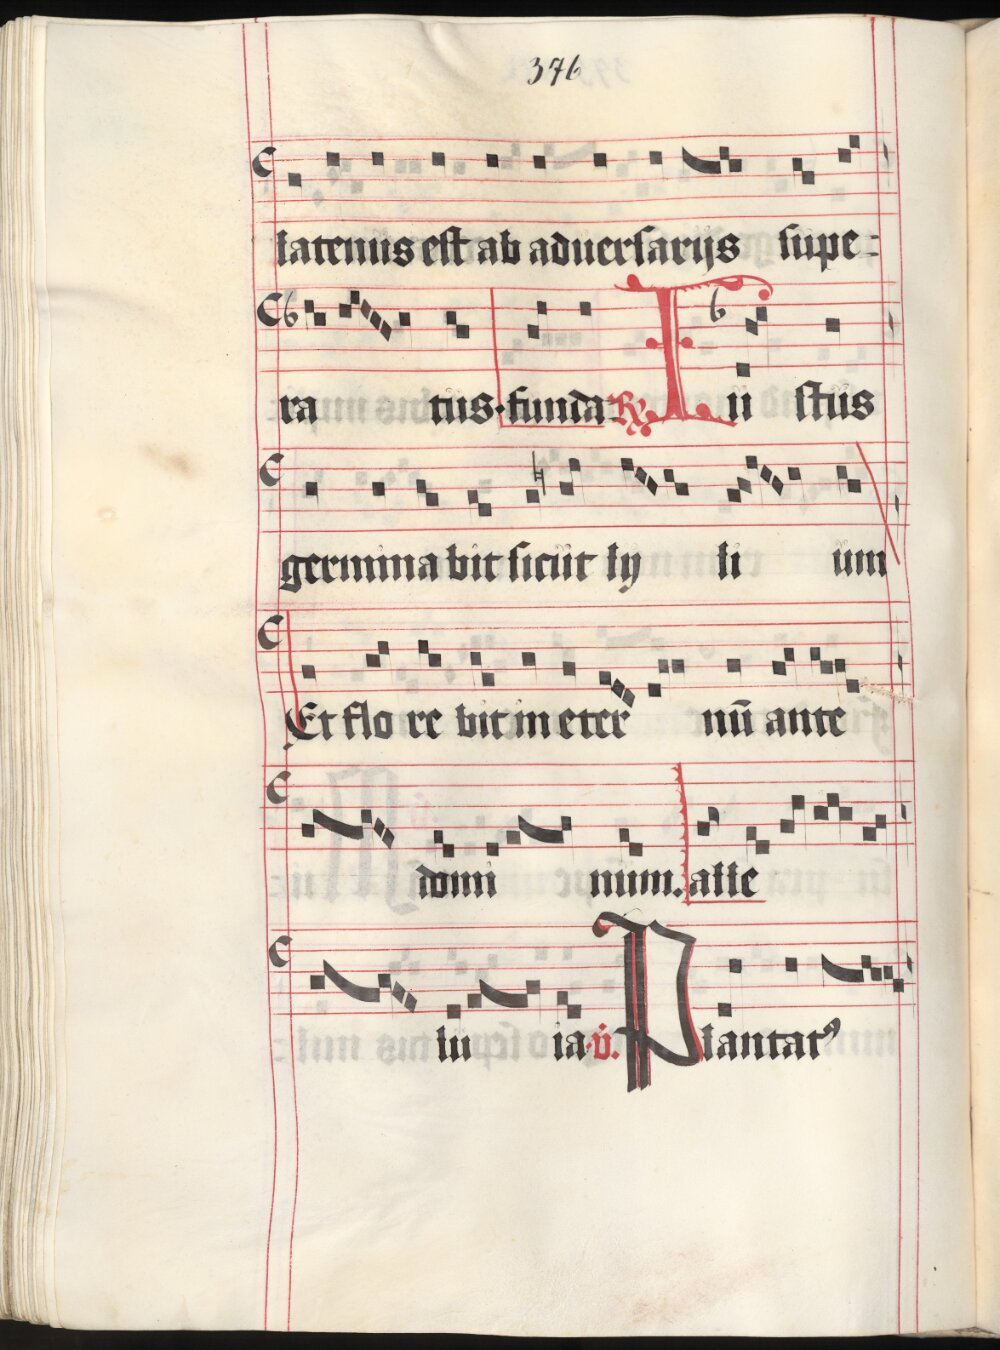 376
latenus est ab aduersarijs supe-
ra tus. funda ℟ Iu stus
germina bit sicut ly li um
Et flo re bit in eter nū ante
domi num. alle
lu ia. v̇. Plantat⁹